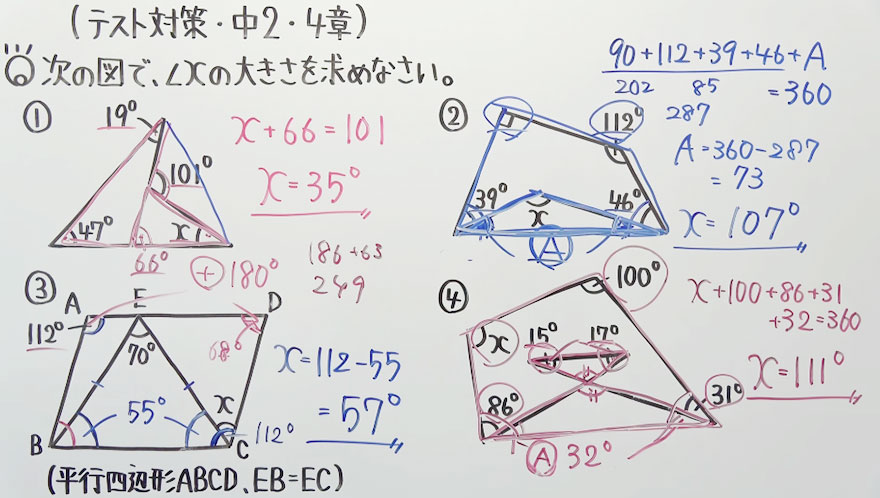 (テスト対策・中2・4章)
次の図で、∠xの大きさを求めなさい。
①
19°
101°
47°
x
66°
x+66=101
x=35°
②
112°
39°
46°
x
A
90+112+39+46+A
202 85
=360
287
A=360-287
=73
x=107°
③
A E D
112°
70°
68°
55°
x
B
C
112°
+ 180°
186+63
249
x=112-55
=57°
(平行四辺形ABCD、EB=EC)
④
100°
x
15° 17°
86°
31°
A 32°
x+100+86+31
+32=360
x=111°